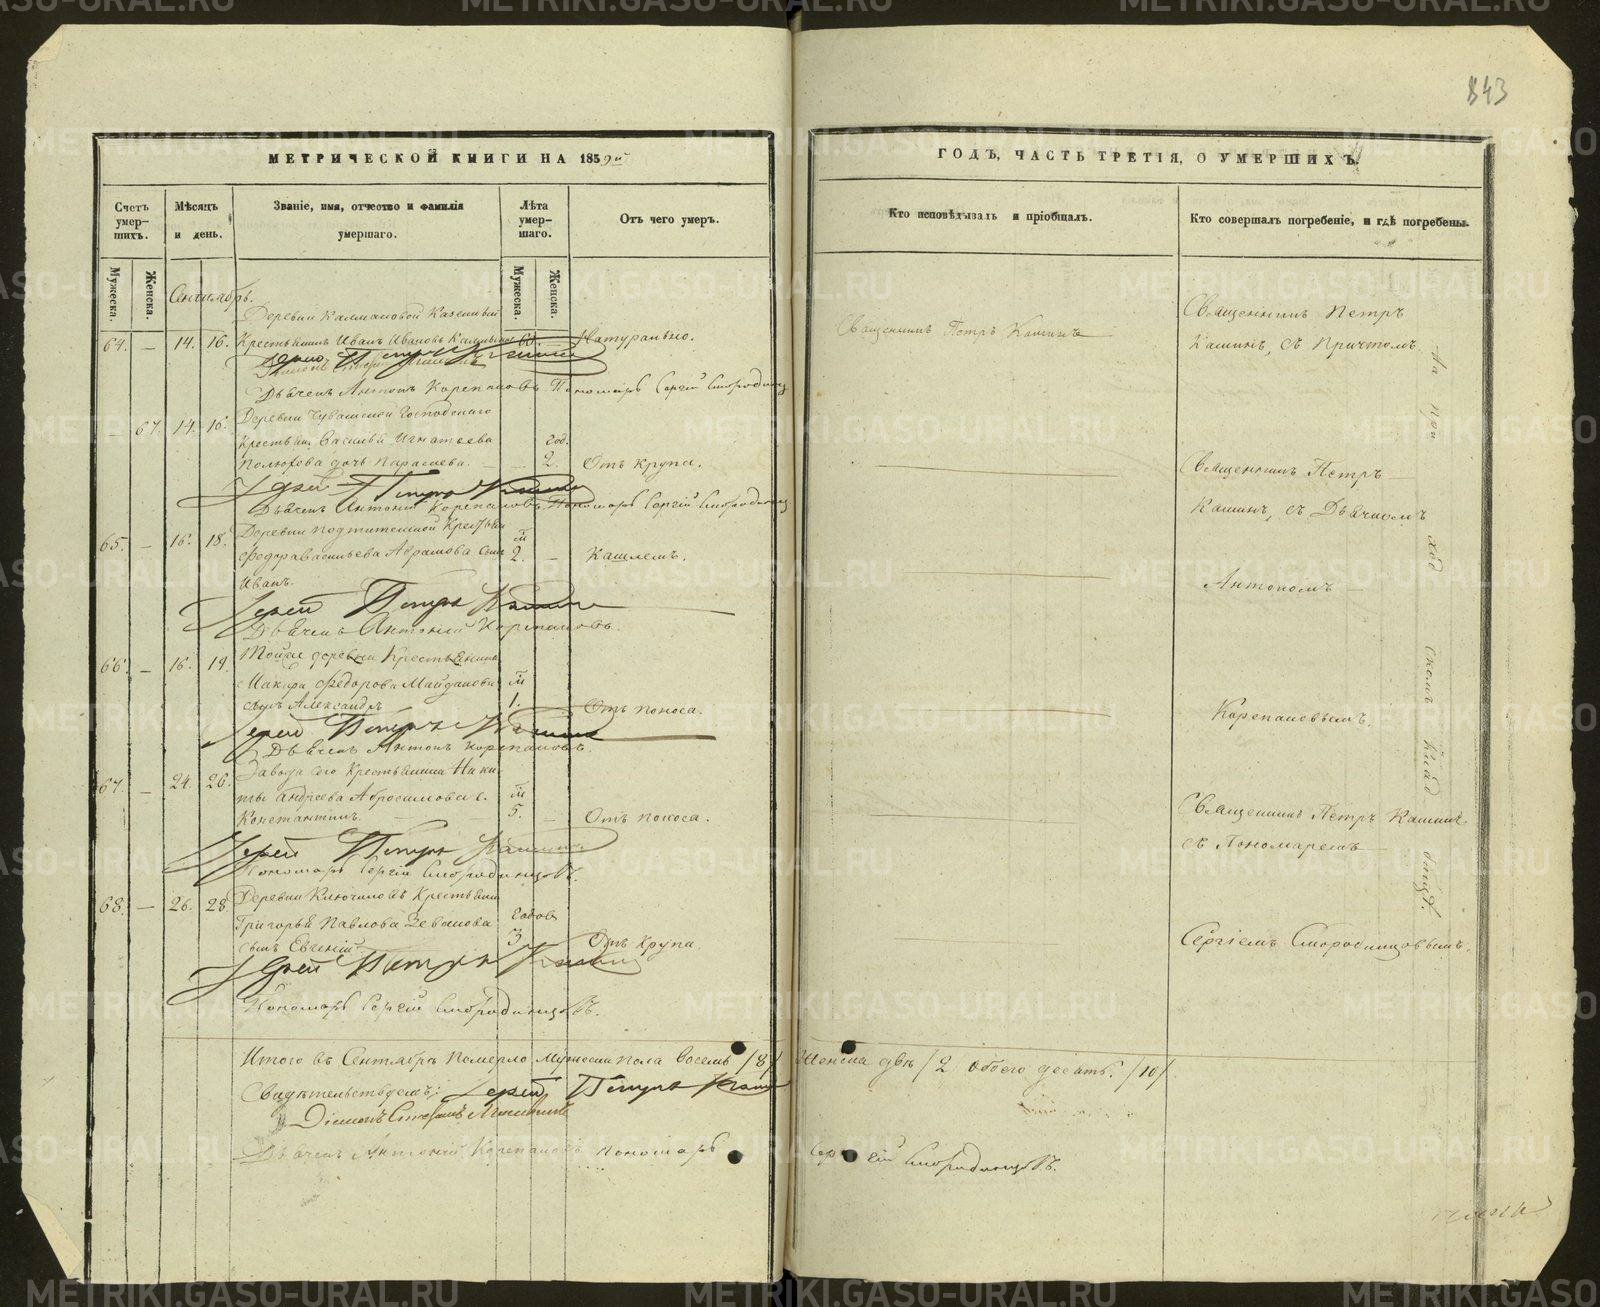 843
МЕТРИЧЕСКОЙ КНИГИ НА 1859й
Счетъ умер-
шихъ.
Мѣсяцъ
и день.
Званіе, имя, отчество и фамилія
умершаго.
Лѣта
умер-
шаго.
Отъ чего умеръ.
Мужеска.
Женска.
Мужеска.
Женска.
Сентябрь.
64. — 14. 16.
Крестьянинъ Иванъ Ивановъ
60. —
Натурально.
Іерей Петръ Кашинъ
Дьячекъ Антонъ Корепановъ Пономарь Сергій Смородинц
— 67. 14. 16.
Деревни Чувашской Господскаго
крестьян Василья Игнатьева
дочь Параскева.
год.
2.
Отъ крупа.
Іерей Петръ Кашинъ
Дьячекъ Антоній Корепановъ. Пономарь Сергій Смородинц
65. — 16. 18.
Федора Васильева Абрамова сынъ
Иванъ.
2. —
Кашлемъ.
Іерей Петръ Кашинъ
Дьячекъ Антоній Корепановъ.
66. — 16. 19.
Тойже деревни Крестьянина
Федорова
сынъ Александръ
1.
Отъ поноса.
Іерей Петръ Кашинъ
Дьячекъ Антонъ Корепановъ.
67. — 24. 26.
Завода сего Крестьянина Ники-
ты Андреева Абросимова с.
Константинъ.
5. —
Отъ поноса.
Іерей Петръ Кашинъ
Пономарь Сергій Смородинцовъ.
68. — 26. 28.
Деревни Ключиковъ Крестьян
Григорья Павлова
сынъ Евгеній
Годовъ
3
Отъ крупа
Іерей Петръ Кашинъ
Пономарь Сергій Смородинцовъ.
Итого въ Сентябрѣ померло мужеска пола восемь /8/
Свидѣтельствуемъ: Іерей Петръ Кашин
Діаконъ Стефанъ
Дьячекъ Антоній Корепановъ пономарь
ГОДЪ, ЧАСТЬ ТРЕТІЯ, О УМЕРШИХЪ.
Кто исповѣдывалъ и пріобщалъ.
Кто совершалъ погребеніе, и гдѣ погребены.
Священникъ Петръ Кашинъ
Священникъ Петръ
Кашинъ, съ Причтомъ
Священникъ Петръ
Кашинъ, съ Дьячкомъ
Антономъ
Корепановымъ.
Священникъ Петръ Кашинъ
съ Пономаремъ
Сергіемъ Смородинцовымъ.
На при ход скомъ клад бищѣ.
Женска двѣ /2/ обоего десять. /10/
Сергій Смородинцовъ.
METRIKI.GASO-URAL.RU